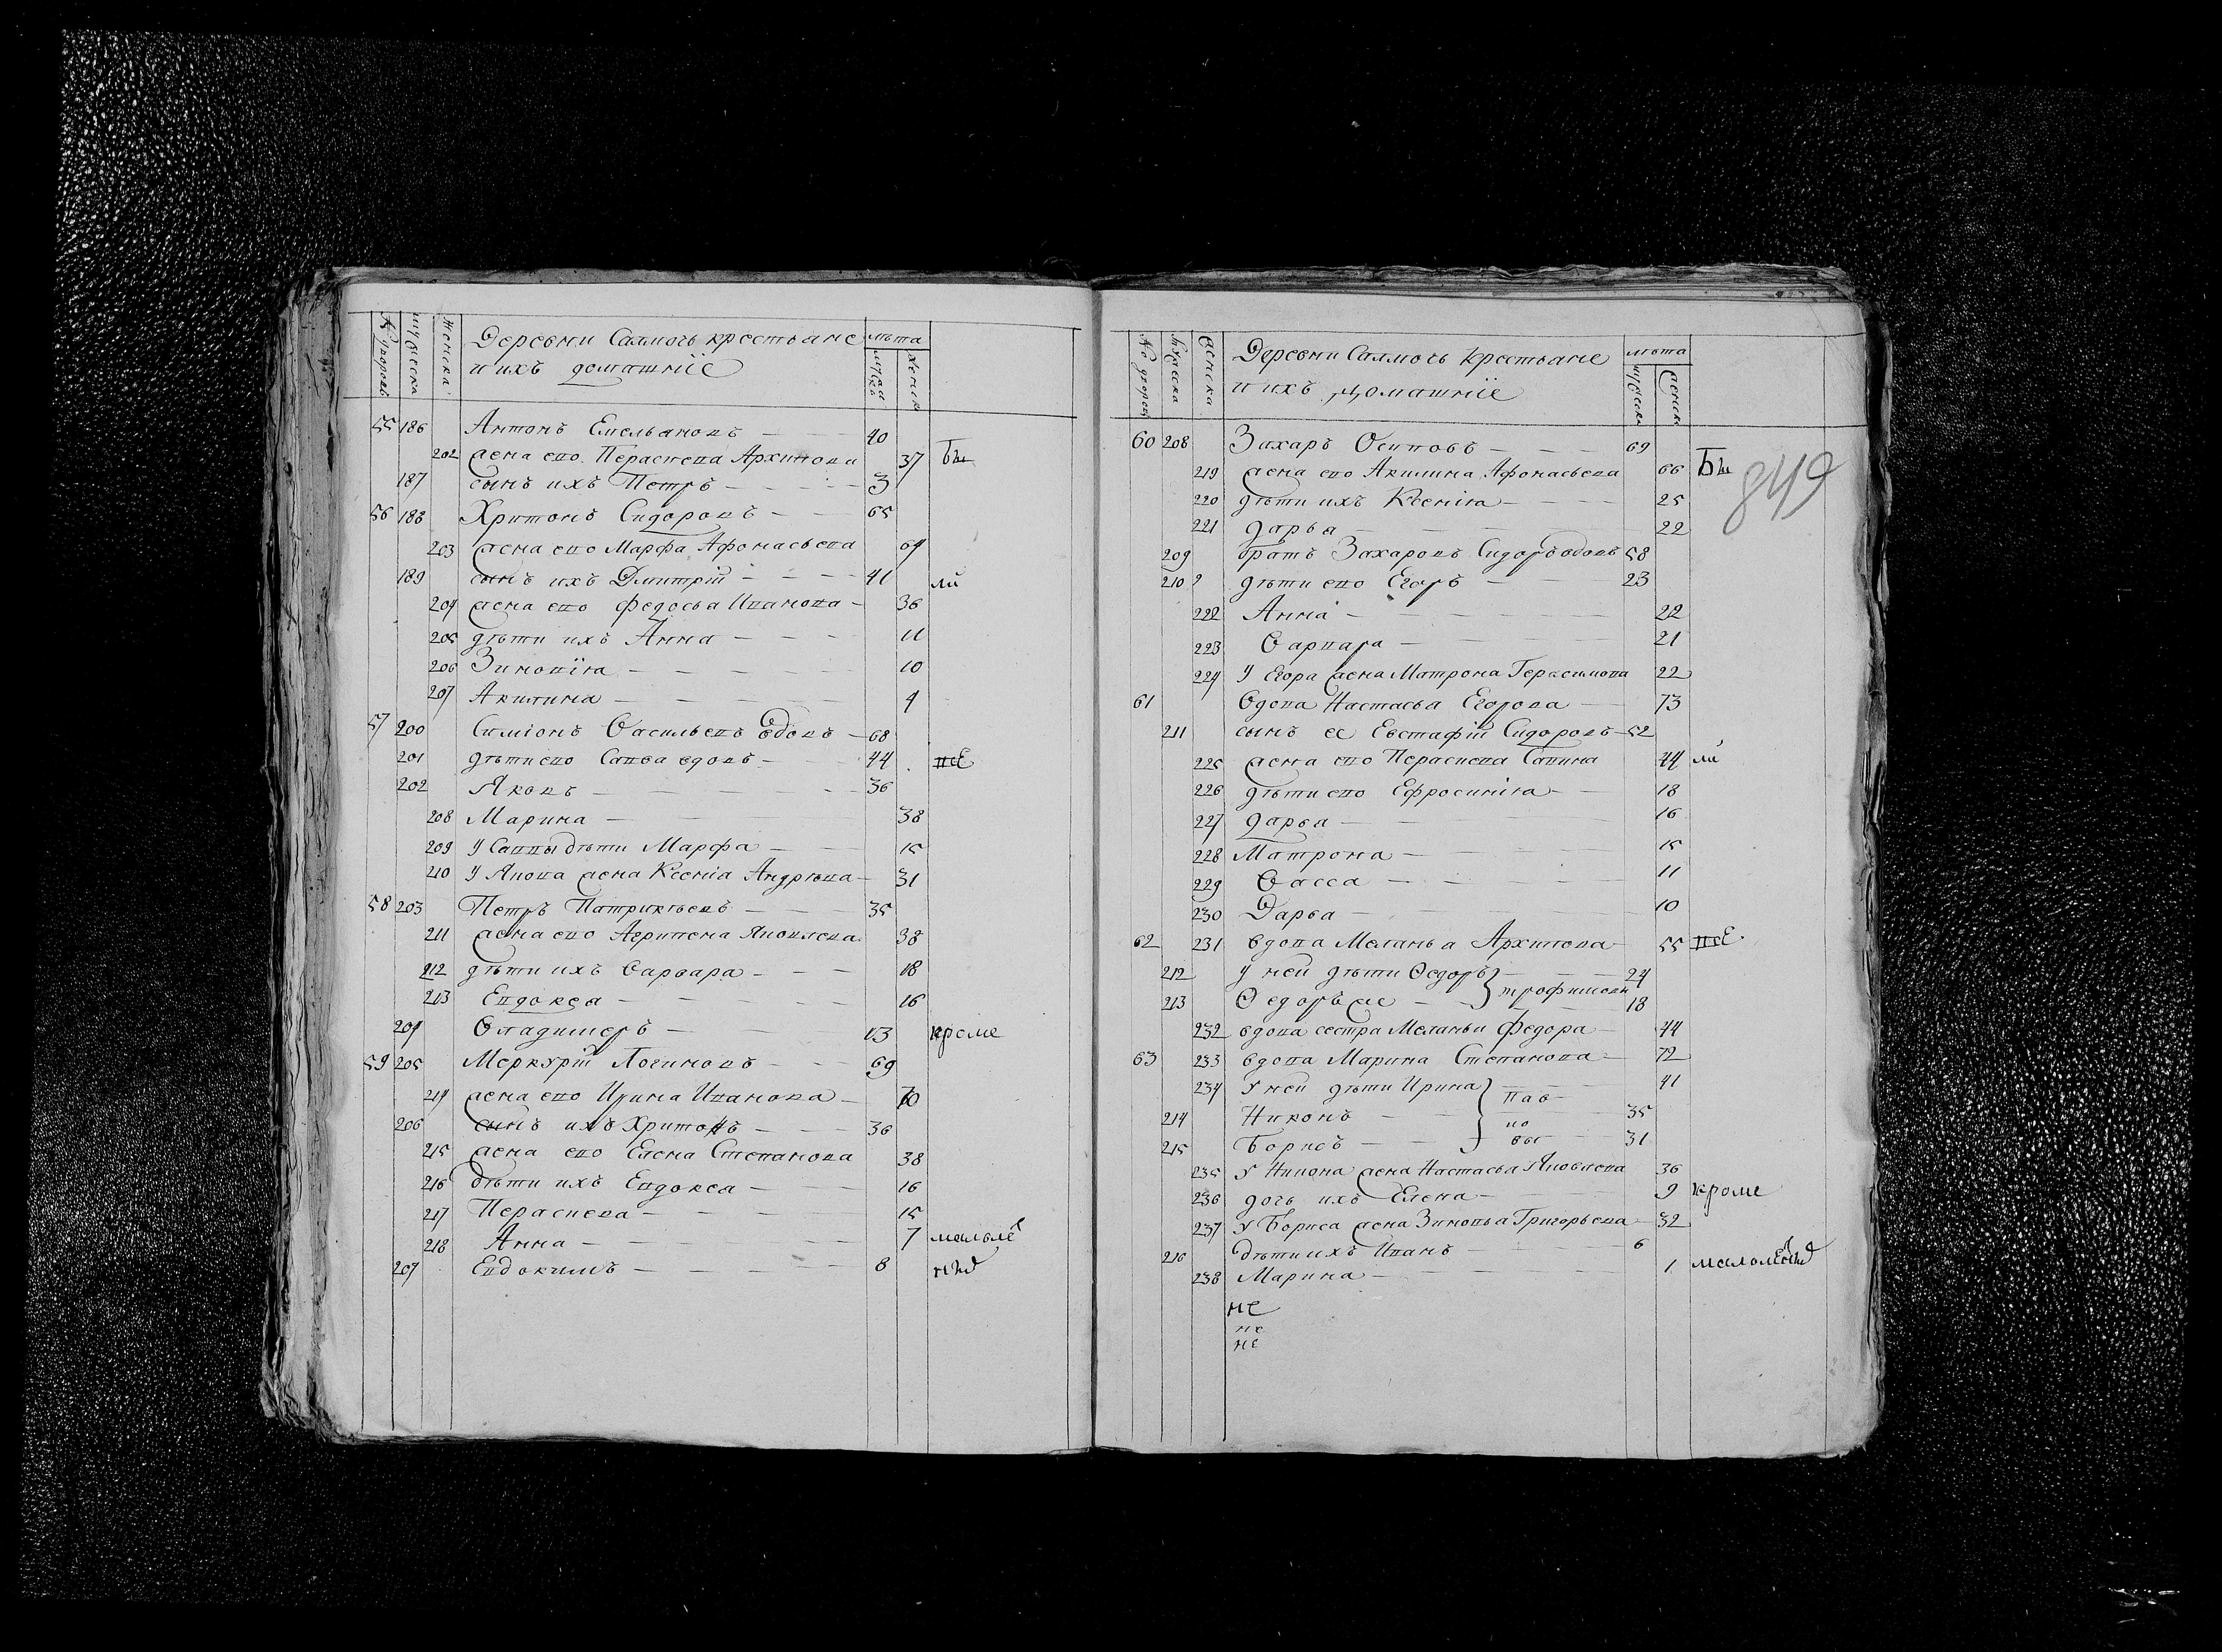 № дворовъ мужеска женска Деревни Саямогъ крестьяне лѣта
и ихъ домашніе мужска женск
55 186 Антонъ Емельяновъ 40
202 жена ево Перасковя Архипова 37 Бы
187 сынъ ихъ Петръ 3
56 188 Хритонъ Сидоровъ 65
203 жена ево Марфа Афонасьева 64
189 сынъ ихъ Дмитрій 41 ли
204 жена ево Федосья Иванова 36
205 дѣти ихъ Анна 11
206 Зиновія 10
207 Акилина 4
57 200 Симіонъ Васильевъ вдовъ 68
201 дѣти ево Савва вдовъ 44 всѣ
202 Яковъ 36
208 Марина 38
209 У Саввы дѣти Марфа 15
210 У Якова жена Ксенія Андрѣева 31
58 203 Петръ Патрикѣевъ 35
211 жена ево Агрипена Яковлева 38
212 дѣти ихъ Варвара 18
213 Евдокея 16
204 Владимеръ 13 кроме
59 205 Меркурій Логиновъ 69
214 жена ево Ирина Иванова 70
206 сынъ ихъ Хритонъ 36
215 жена ево Елена Степанова 38
216 дѣти ихъ Евдокея 16
217 Перасковя 15
218 Анна 7 малолѣ
207 Евдокимъ 8 тнд
№ дворовъ мужеска женска Деревни Саямогъ крестьяне лѣта
и ихъ домашніе мужеска женска
60 208 Захаръ Осиповъ 69
849
219 жена ево Акилина Афонасьева 66 Бы
220 дѣти ихъ Ксенія 25
221 Дарья 22
209 братъ Захаровъ Сидоръ вдовъ 58
210 дѣти ево Егоръ 23
222 Анна 22
223 Варвара 21
224 У Егора жена Матрона Герасимова 22
61 Вдова Настасья Егорова 73
211 сынъ ее Евстафій Сидоровъ 52
225 жена ево Перасковя Савина 44 ли
226 дѣти ево Ефросинія 18
227 Дарья 16
228 Матрона 15
229 Васса 11
230 Дарья 10
62 231 вдова Меланья Архипова 55 всѣ
212 У ней дѣти Ѳедоръ 24
213 Ѳедоръ же трофимовы 18
232 вдова сестра Меланьи Федора 44
63 233 вдова Марина Степанова 72
234 У ней дѣти Ирина Пав 41
214 Никонъ ло 35
215 Борисъ вы 31
235 У Никона жена Настасья Яковлева 36
236 дочь ихъ Елена 9 кроме
237 У Бориса жена Зиновья Григорьева 32
216 дѣти ихъ Иванъ 6
238 Марина 1
не
не
не